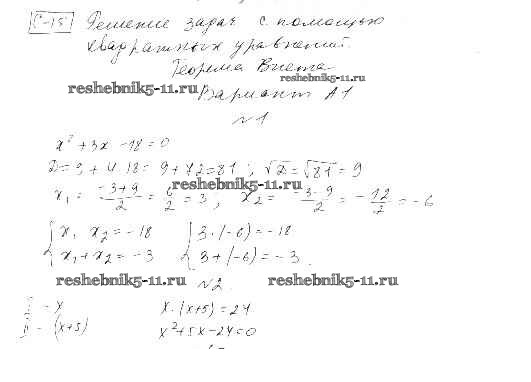 С-15 Решение задач с помощью
квадратных уравнений.
Теорема Виета
reshebnik5-11.ru
reshebnik5-11.ru
Вариант А1
№1
x² + 3x - 18 = 0
D = 9 + 4·18 = 9 + 72 = 81; √D = √81 = 9
x₁ = (-3+9)/2 = 6/2 = 3; x₂ = (-3-9)/2 = -12/2 = -6
reshebnik5-11.ru
{ x₁ x₂ = -18 { 3·(-6) = -18
{ x₁ + x₂ = -3 { 3 + (-6) = -3.
reshebnik5-11.ru reshebnik5-11.ru
№2
I - x x·(x+5) = 24
II - (x+5) x² + 5x - 24 = 0